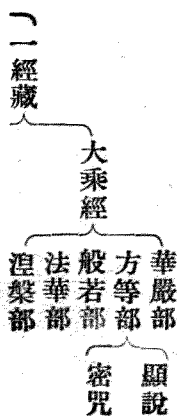 一經藏
大乘經
華嚴部
方等部
般若部
法華部
涅槃部
顯說
密咒